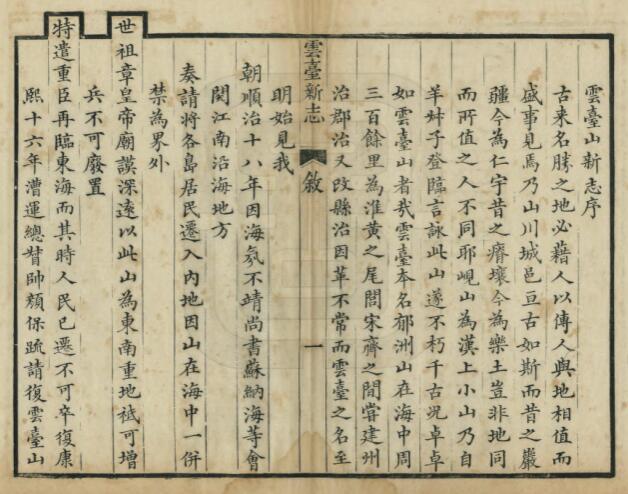 雲臺山新志序
古来名勝之地必藉人以傳人與地相值而
盛事見焉乃山川城邑亘古如斯而昔之巖
疆今為仁宇昔之瘠壤今為樂土豈非地同
而所值之人不同耶峴山為漢上小山乃自
羊叔子登臨言詠此山遂不朽千古況卓卓
如雲臺山者哉雲臺本名郁洲山在海中周
三百餘里為淮黃之尾閭宋齊之間嘗建州
治郡治又改縣治因革不常而雲臺之名至
雲臺新志 敘 一
明始見我
朝順治十八年因海氛不靖尚書蘇納海等會
閱江南沿海地方
奏請將各島居民遷入內地因山在海中一併
禁為界外
世祖章皇帝廟謨深遠以此山為東南重地祗可增
兵不可廢置
特遣重臣再臨東海而其時人民已遷不可卒復康
熙十六年漕運總督帥顏保疏請復雲臺山